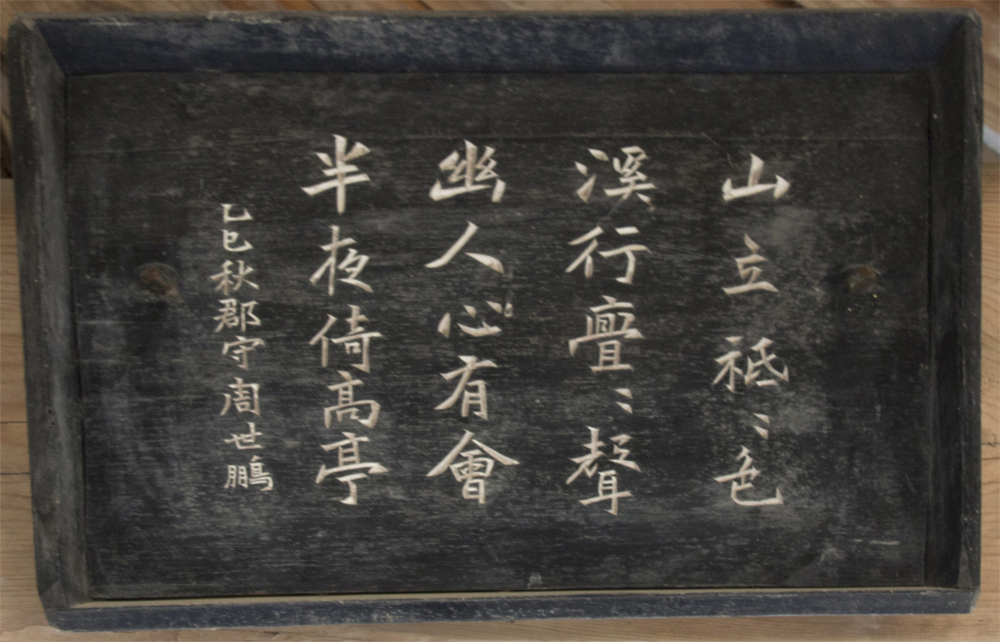 山立祗〻色
溪行亹〻聲
幽人心有會
半夜倚高亭
乙巳秋郡守周世鵬